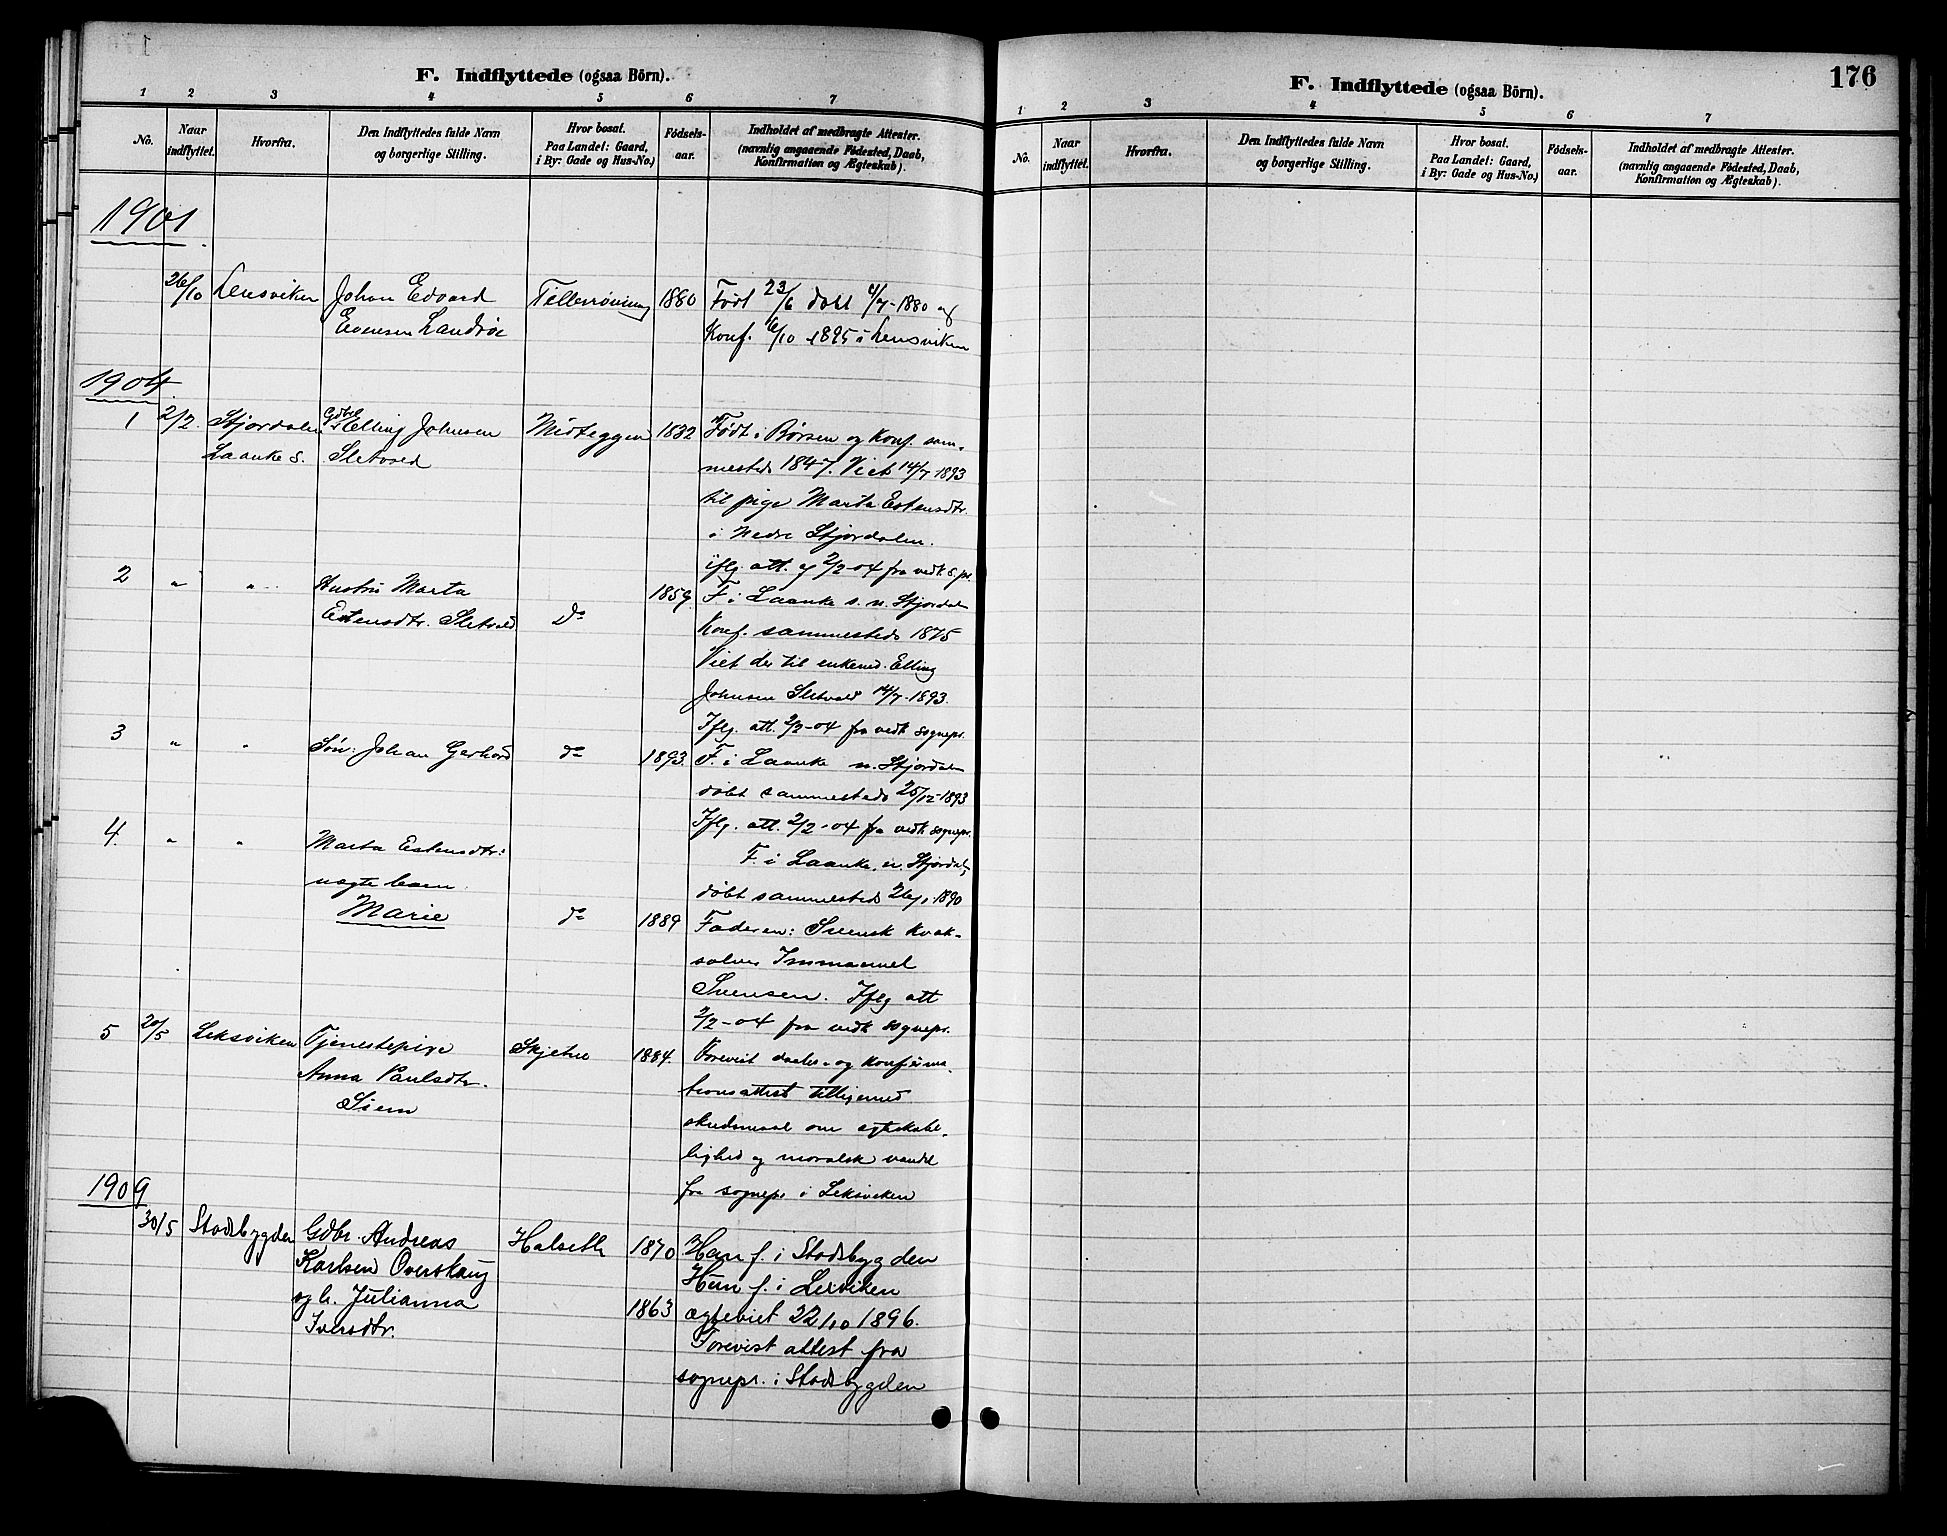 F. Indflyttede (ogsaa Börn).
1 2 3 4 5 6 7
No.
Naar
indflyttet.
Hvorfra.
Den Indflyttedes fulde Navn
og borgerlige Stilling.
Hvor bosat.
Paa Landet: Gaard,
i By: Gade og Hus-No.)
Födsels-
aar.
Indholdet af medbragte Attester.
(navnlig angaaende Födested, Daab,
Konfirmation og Ægteskab).
1901
26/10 Lensviken Johan Edvard 1880 Født 23/6 døbt 4/7-1880 og
Evensen Landrøe Konf. 6/10 1895 i Lensviken
1904.
1 2/2. Stjørdalen Gdbr. Elling Johnsen Nidteggen 1832 Født i Børsen og Konf. sam-
Laanke s. Sletvold mesteds 1847. Viet 14/7 1893
til pige Marta Estensdtr.
i Nedre Stjørdalen.
iflg. att. af 2/2-04 fra vedk. s.pr.
2 " " Hustru Marta 1859. F. i Laanke s. n. Stjørdalen
Estensdtr. Sletvold Do Konf. sammesteds 1875
Viet der til enkem. Elling
Johnsen Sletvold 14/7-1893.
Iflg. att. 2/2-04 fra vedk sognepr.
3 " " Søn: Johan Gerhard do 1893. F. i Laanke n. Stjørdalen
døbt sammesteds 25/12-1893
Iflg. att. 2/2-04 fra vedk sognepr.
4. " " Marta Estensdtr: F. i Laanke, n. Stjørdalen
uægte barn. døbt sammesteds 26/1 1890
Marie do 1889 Faderen: Svensk kvak-
salver Immanuel
Svensen. Iflg att
2/2-04 fra vedk sognepr.
5 20/5 Leksviken Tjenestepige Skjetne 1884. Forevist daabs- og konfirma-
Anna Paulsdtr. tionsattest tilligemed
Siem skudsmaal om ægteskabe-
lighed og moralsk vandel
fra sognepr i Leksviken
1909
30/5 Stadsbygden Gdbr. Andreas Halseth 1870 Han f. i Stadsbygden
Karlsen Overskaug Hun f. i Lexviken
og h. Julianna 1863 ægteviet 22/10 1896.
Iversdtr. Forevist attest fra
sognepr. i Stadsbygden
F. Indflyttede (ogsaa Börn).
176
1 2 3 4 5 6 7
No.
Naar
indflyttet.
Hvorfra.
Den Indflyttedes fulde Navn
og borgerlige Stilling.
Hvor bosat.
Paa Landet: Gaard,
i By: Gade og Hus-No.)
Födsels-
aar.
Indholdet af medbragte Attester.
(navnlig angaaende Födested, Daab,
Konfirmation og Ægteskab).